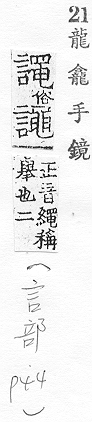 21 龍龕手鏡
俗譝正音繩稱舉也二
(言部 p44)